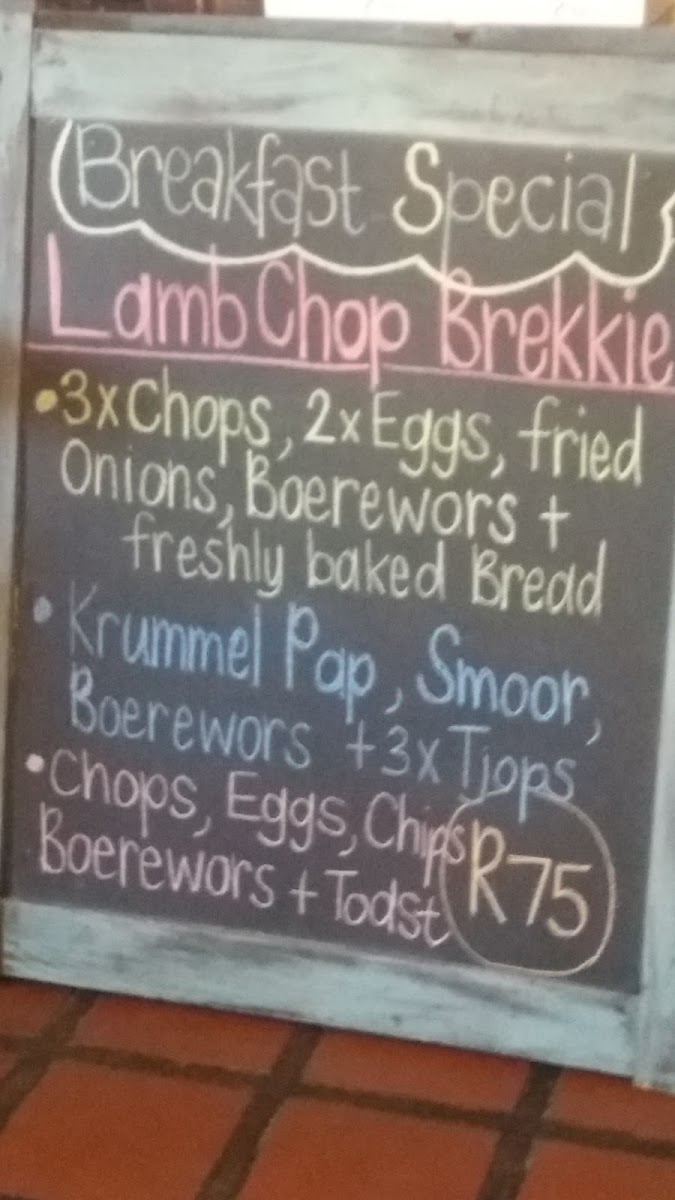 Breakfast Special
Lamb Chop Brekkie
• 3x Chops, 2x Eggs, fried
Onions, Boerewors +
freshly baked Bread
• Krummel Pap, Smoor,
Boerewors + 3x Tjops
• Chops, Eggs, Chips
Boerewors + Toast
R75